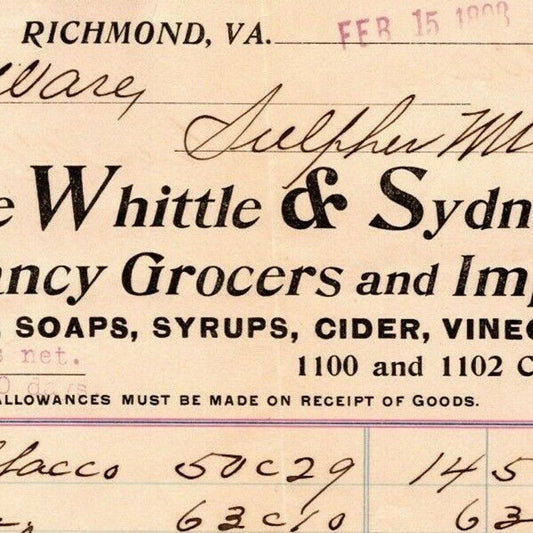 RICHMOND, VA. FEB 15 1898
Ware,
Sulpher M
e Whittle & Sydn
ancy Grocers and Imp
SOAPS, SYRUPS, CIDER, VINEG
s net.
1100 and 1102 C
0 days
ALLOWANCES MUST BE MADE ON RECEIPT OF GOODS.
bacco 50 c 29 14 5
63 c 10 63